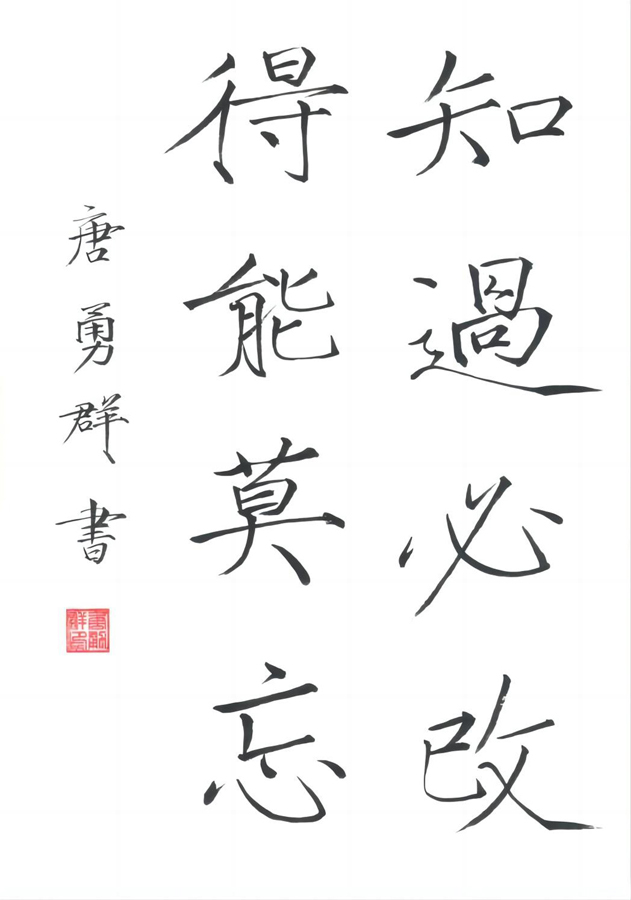 知過必改
得能莫忘
唐勇群書